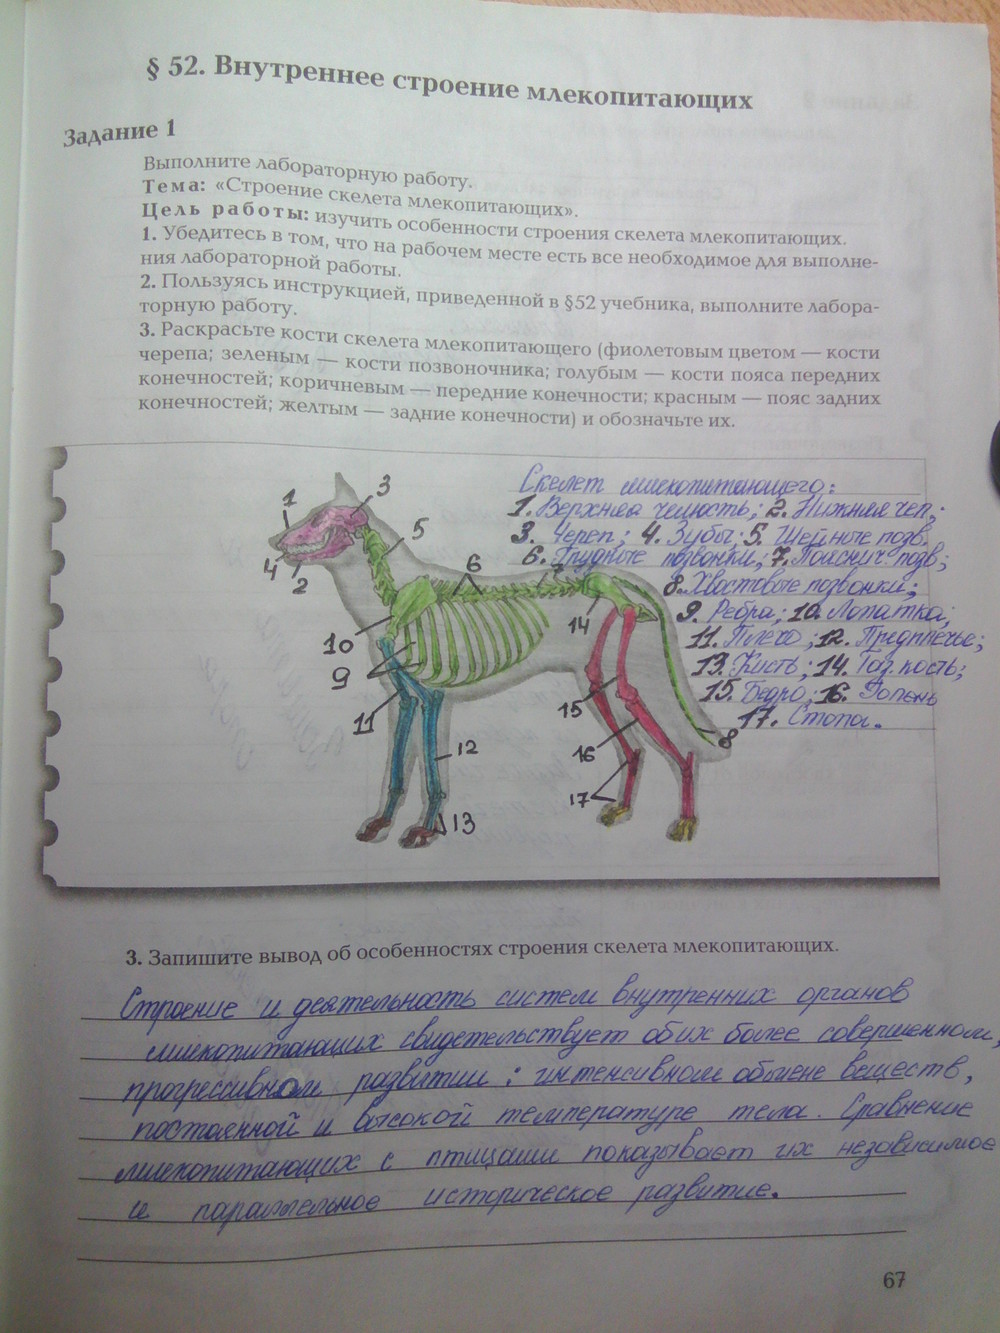 § 52. Внутреннее строение млекопитающих
Задание 1
Выполните лабораторную работу.
Тема: «Строение скелета млекопитающих».
Цель работы: изучить особенности строения скелета млекопитающих.
1. Убедитесь в том, что на рабочем месте есть все необходимое для выполне-
ния лабораторной работы.
2. Пользуясь инструкцией, приведенной в §52 учебника, выполните лабора-
торную работу.
3. Раскрасьте кости скелета млекопитающего (фиолетовым цветом — кости
черепа; зеленым — кости позвоночника; голубым — кости пояса передних
конечностей; коричневым — передние конечности; красным — пояс задних
конечностей; желтым — задние конечности) и обозначьте их.
Скелет млекопитающего:
1. Верхняя челюсть; 2. Нижняя чел.;
3. Череп; 4. Зубы; 5. Шейные позв.
6. Грудные позвонки; 7. Пояснич. позв;
8. Хвостовые позвонки;
9. Ребра; 10. Лопатка;
11. Плечо; 12. Предплечье;
13. Кисть; 14. Таз. кость;
15. Бедро; 16. Голень
17. Стопа.
1
3
5
4
2
6
7
10
14
9
11
15
12
16
8
17
13
3. Запишите вывод об особенностях строения скелета млекопитающих.
Строение и деятельность систем внутренних органов
млекопитающих свидетельствует об их более совершенном,
прогрессивном развитии: интенсивном обмене веществ,
постоянной и высокой температуре тела. Сравнение
млекопитающих с птицами показывает их независимое
и параллельное историческое развитие.
67